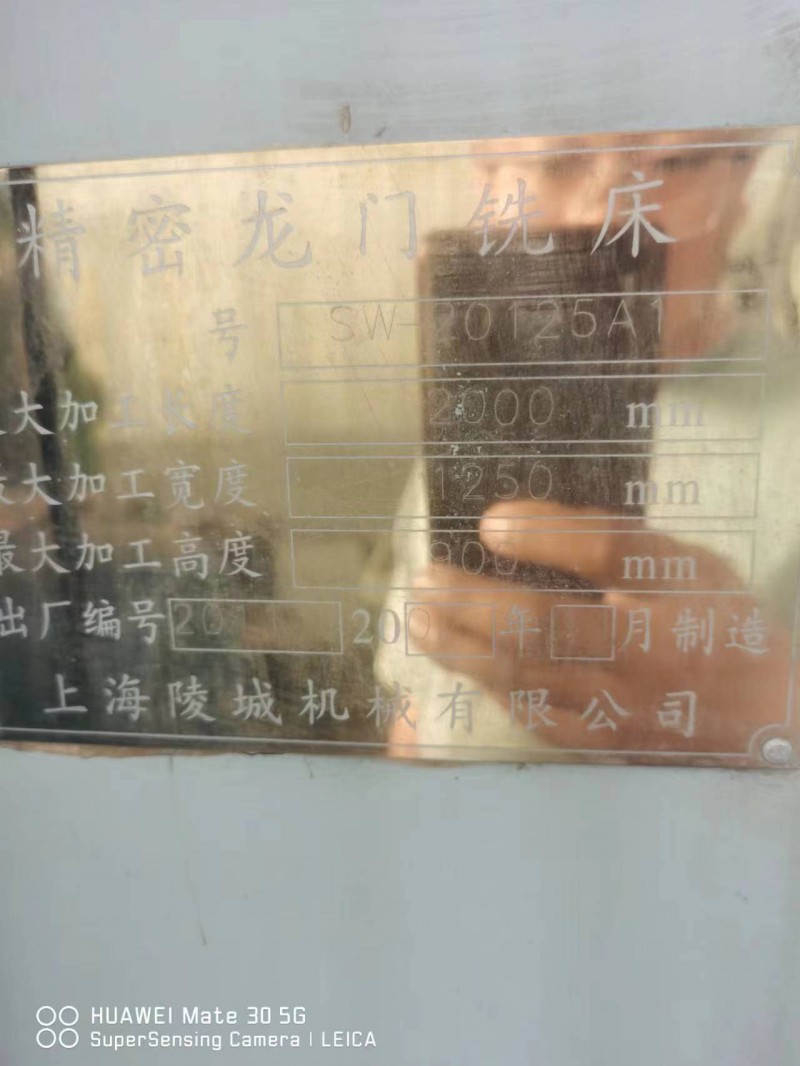 精密龙门铣床
号 SW-20125A1
大加工长度 2000 mm
最大加工宽度 1250 mm
最大加工高度 900 mm
出厂编号 201 200 年 月制造
上海陵城机械有限公司
HUAWEI Mate 30 5G
SuperSensing Camera | LEICA